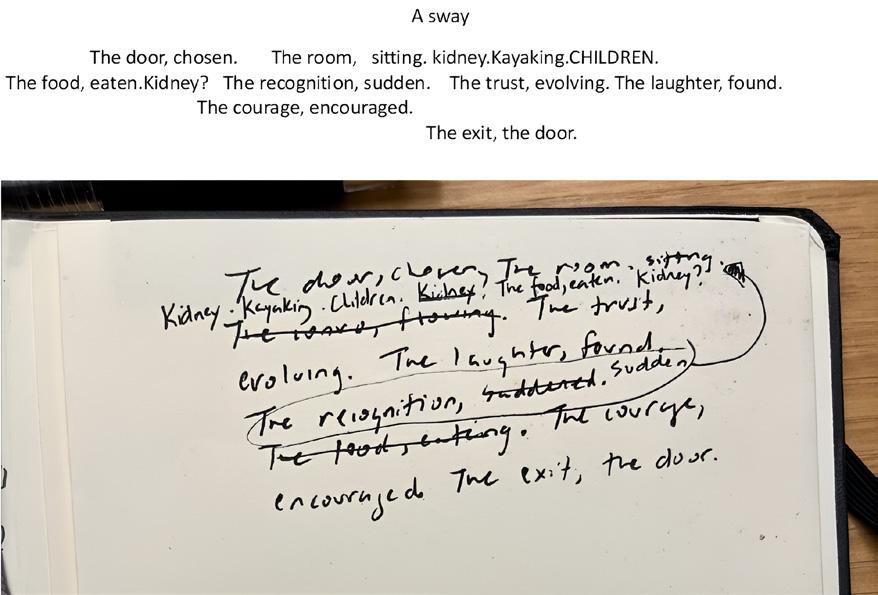 A sway
The door, chosen. The room, sitting. kidney.Kayaking.CHILDREN.
The food, eaten.Kidney? The recognition, sudden. The trust, evolving. The laughter, found.
The courage, encouraged.
The exit, the door.
The door, chosen, The room. sitting.
Kidney. Kayaking. Children. Kidney? The food, eaten. Kidney?
The words, flowing. The trust,
evolving. The laughter, found.
The recognition, suddened. Sudden
The food, eating. The courage,
encouraged. The exit, the door.